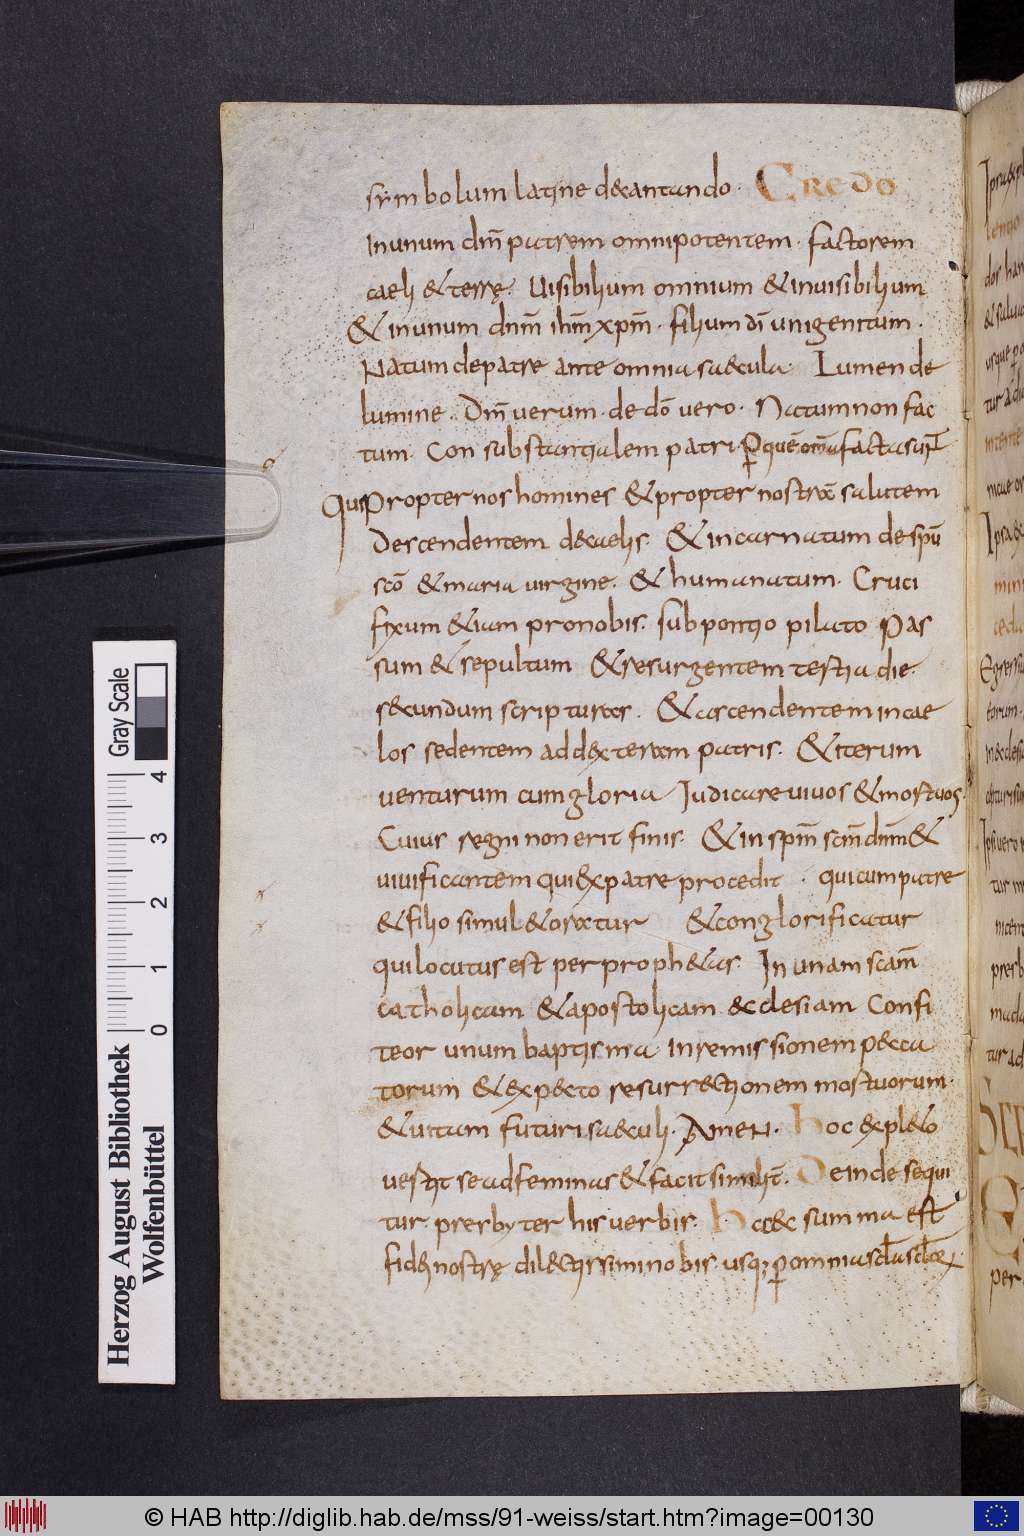 symbolum latine decantando. Credo
In unum dm̄ patrem omnipotentem. factorem
caeli & terrę. Uisibilium omnium & inuisibilium
& in unum dnm̄ ihm̄ xpm̄. filium dī unigenitum.
Natum de patre ante omnia saecula. Lumen de
lumine. Dm̄ verum. de dō vero. Natum non fac
tum. Con substantialem patri p̱ quē om̄a facta sun̄t
Qui Propter nos homines & propter nostrā salutem
Descendentem de caelis. & incarnatum de spū
scō & maria uirgine. & humanatum. Cruci
fixum &iam pro nobis. sub pontio pilato Pas
sum & sepultum & resurgentem tertia die.
s&cundum scripturas. & ascendentem in cae
los sedentem ad dexteram patris. & iterum
venturum cum gloria Iudicare uiuos & mortuos.
Cuius regni non erit finis. & in spm̄ scm̄ dnm̄ &
uiuificantem qui ex patre procedit. qui cum patre
& filio simul adoratur & conglorificatur
qui locutus est per proph&as. In unam scam̄
catholicam & apostolicam ecclesiam Confi
teor unum baptisma in remissionem pecca
torum & exp&to resurrectionem mortuorum.
& uitam futuri saeculi. Amen. Hoc expl&o
uertit se ad feminas & facit similit̄. Deinde sequi
tur presbyter his uerbis. Haec summa est
fidei nostrę dilectissimi nobis. usq; p̱ omnia scl̄a scl̄oꝝ.
Herzog August Bibliothek
Wolfenbüttel
0 1 2 3 4
Gray Scale
© HAB http://diglib.hab.de/mss/91-weiss/start.htm?image=00130